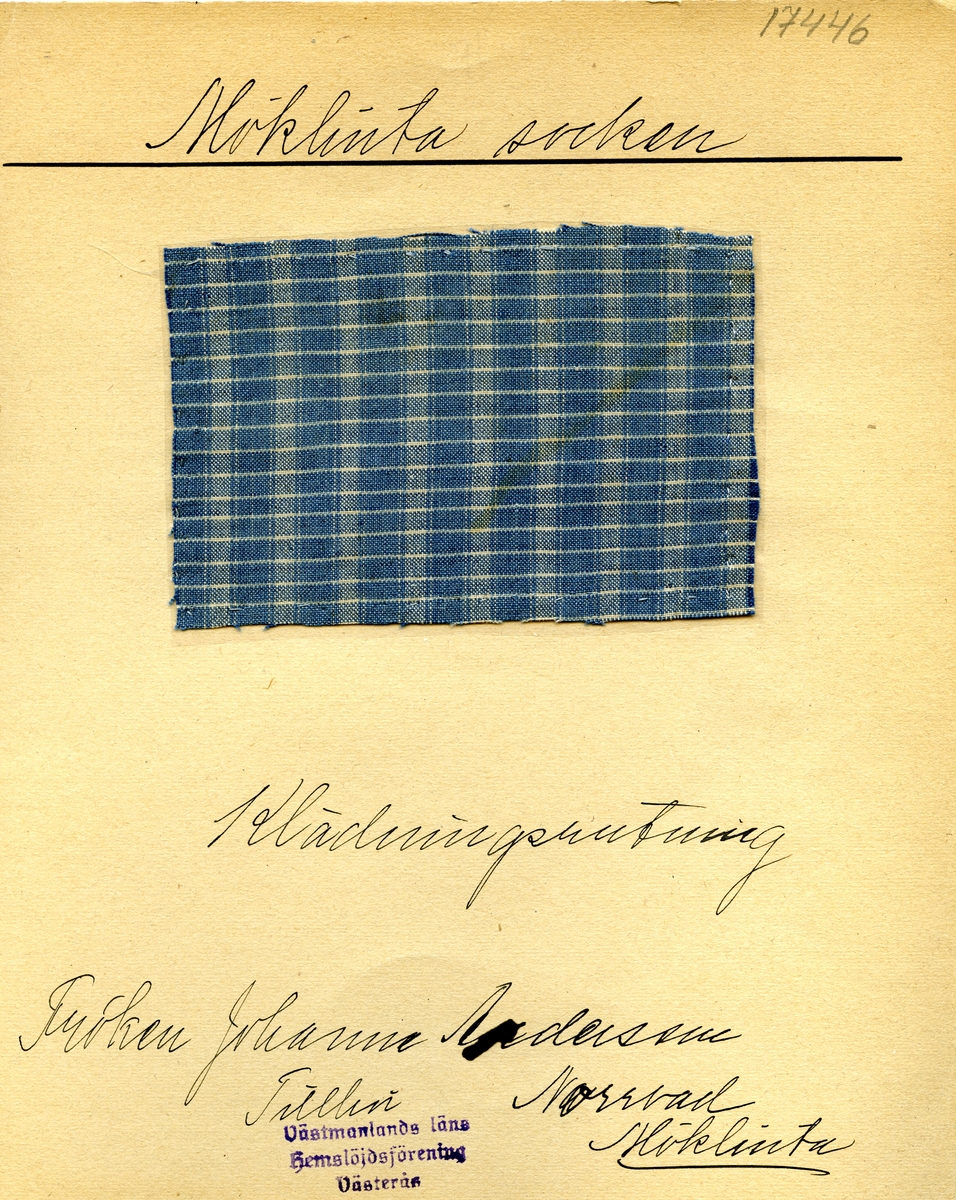 17446
Möklinta socken
Klädningsrutning
Fröken Johanna Andersson
Norrvad
Möklinta
Västmanlands läns
Hemslöjdsförening
Västerås